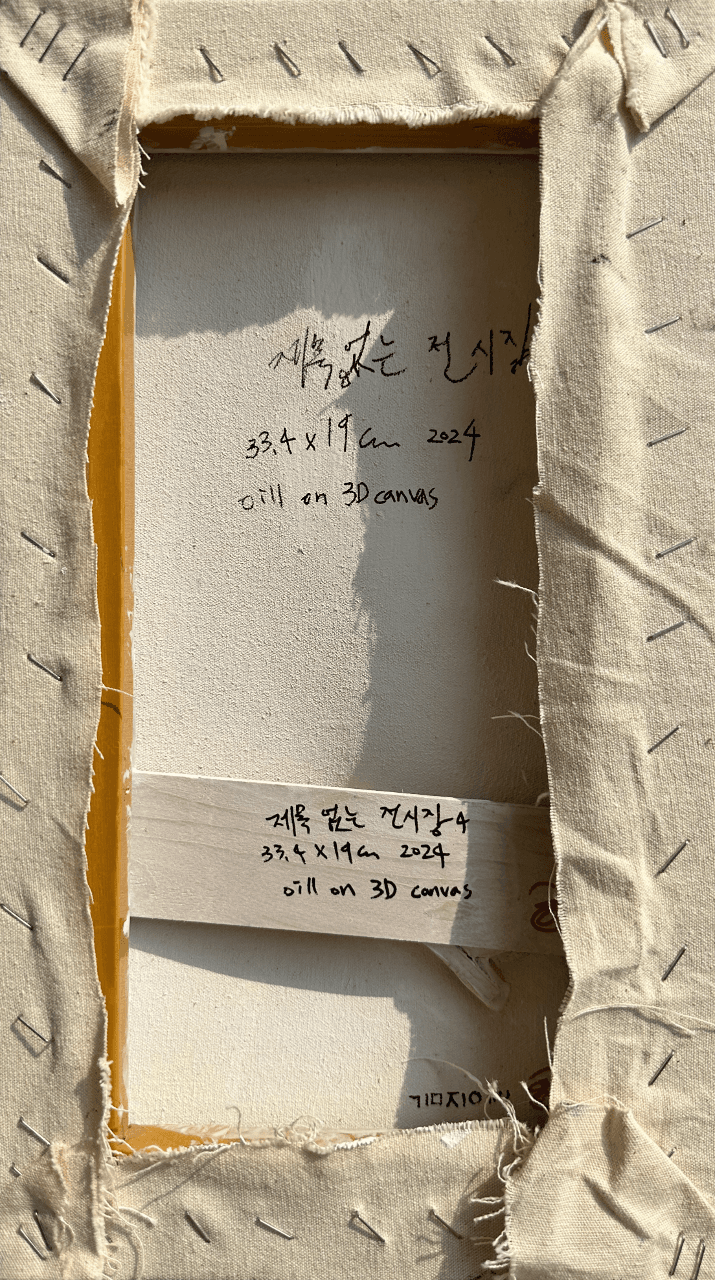 제목없는 전시장
33.4 X 19 cm 2024
oill on 3D canvas
제목 없는 전시장 4
33.4 X 19 cm 2024
oill on 3D canvas